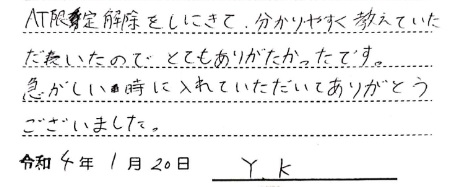 AT限定解除をしにきて、分かりやすく教えていた
だいたので とてもありがたかったです。
急がしい時に入れていただいてありがとう
ございました。
令和4年1月20日 Y.K